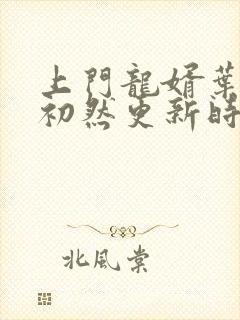 上門龍婿葉
初然更新時
北風棠